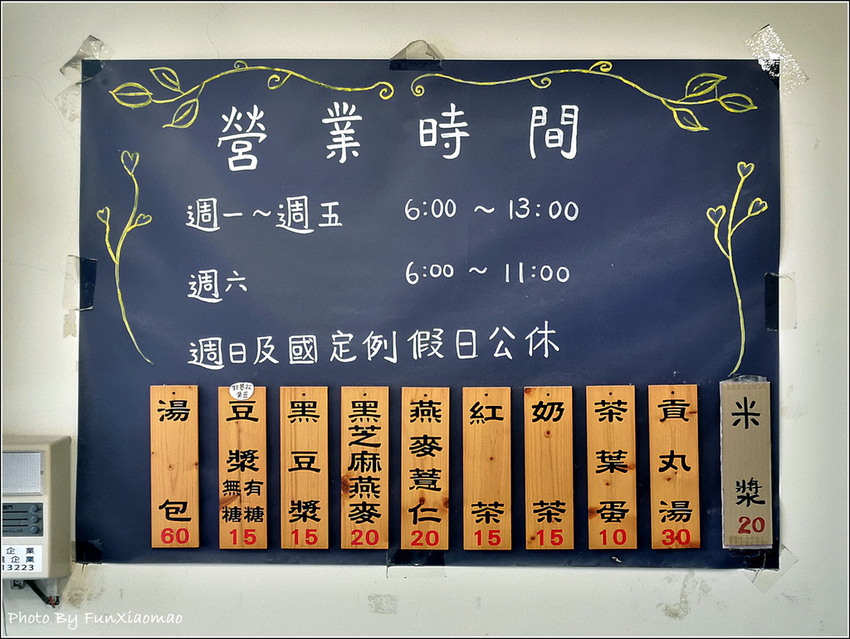 營業時間
週一～週五 6:00 ～ 13:00
週六 6:00 ～ 11:00
週日及國定例假日公休
湯包 60
豆漿 無糖 有糖 15
黑豆漿 15
黑芝麻燕麥 20
燕麥薏仁 20
紅茶 15
奶茶 15
茶葉蛋 10
貢丸湯 30
米漿 20
企業
企業
13223
Photo By FunXiaomao